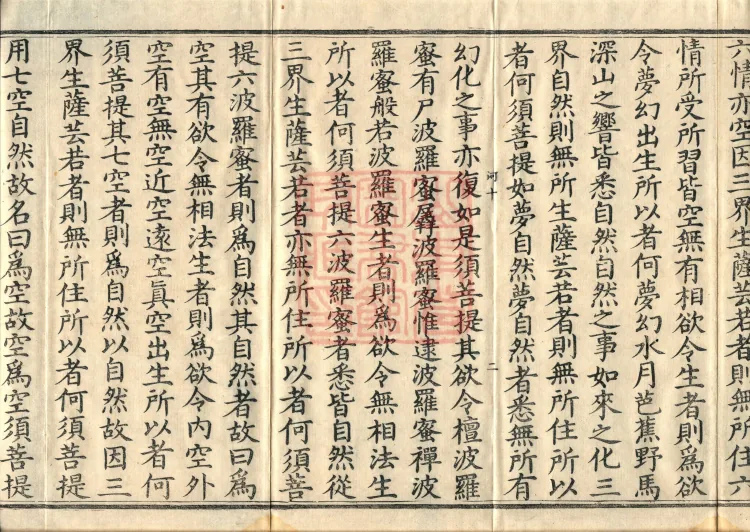 六情亦空因三界生薩芸若者則無所住六
情所受所習皆空無有相欲令生者則為欲
令夢幻出生所以者何夢幻水月芭蕉野馬
深山之響皆悉自然自然之事如來之化三
界自然則無所生薩芸若者則無所住所以
者何須菩提如夢自然夢自然者悉無所有
河十 二
幻化之事亦復如是須菩提其欲令檀波羅
蜜有尸波羅蜜羼波羅蜜惟逮波羅蜜禪波
羅蜜般若波羅蜜生者則為欲令無相法生
所以者何須菩提六波羅蜜者悉皆自然從
三界生薩芸若者亦無所住所以者何須菩
提六波羅蜜者則為自然其自然者故曰為
空其有欲令無相法生者則為欲令內空外
空有空無空近空遠空真空出生所以者何
須菩提其七空者則為自然以自然故因三
界生薩芸若者則無所住所以者何須菩提
用七空自然故名曰為空故空為空須菩提